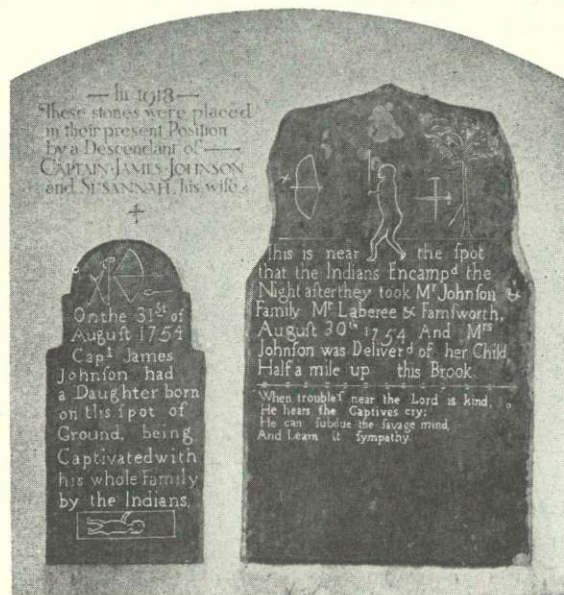 — In 1918 —
These stones were placed
in their present Position
by a Descendant of —
CAPTAIN·JAMES·JOHNSON
and SUSANNAH, his wife.
On the 31st of
Auguſt 1754
Capt James
Johnſon had
a Daughter born
on this ſpot of
Ground, being
Captivated with
his whole Family
by the Indians.
This is near the ſpot
that the Indians Encampd the
Night after they took Mr Johnſon &
Family Mr Laberee & Farnſworth,
Auguſt 30th 1754 And Mrs
Johnſon was Deliverd of her Child
Half a mile up this Brook.
When troubleſ near the Lord is kind,
He hears the Captives cry;
He can ſubdue the ſavage mind,
And Learn it ſympathy.